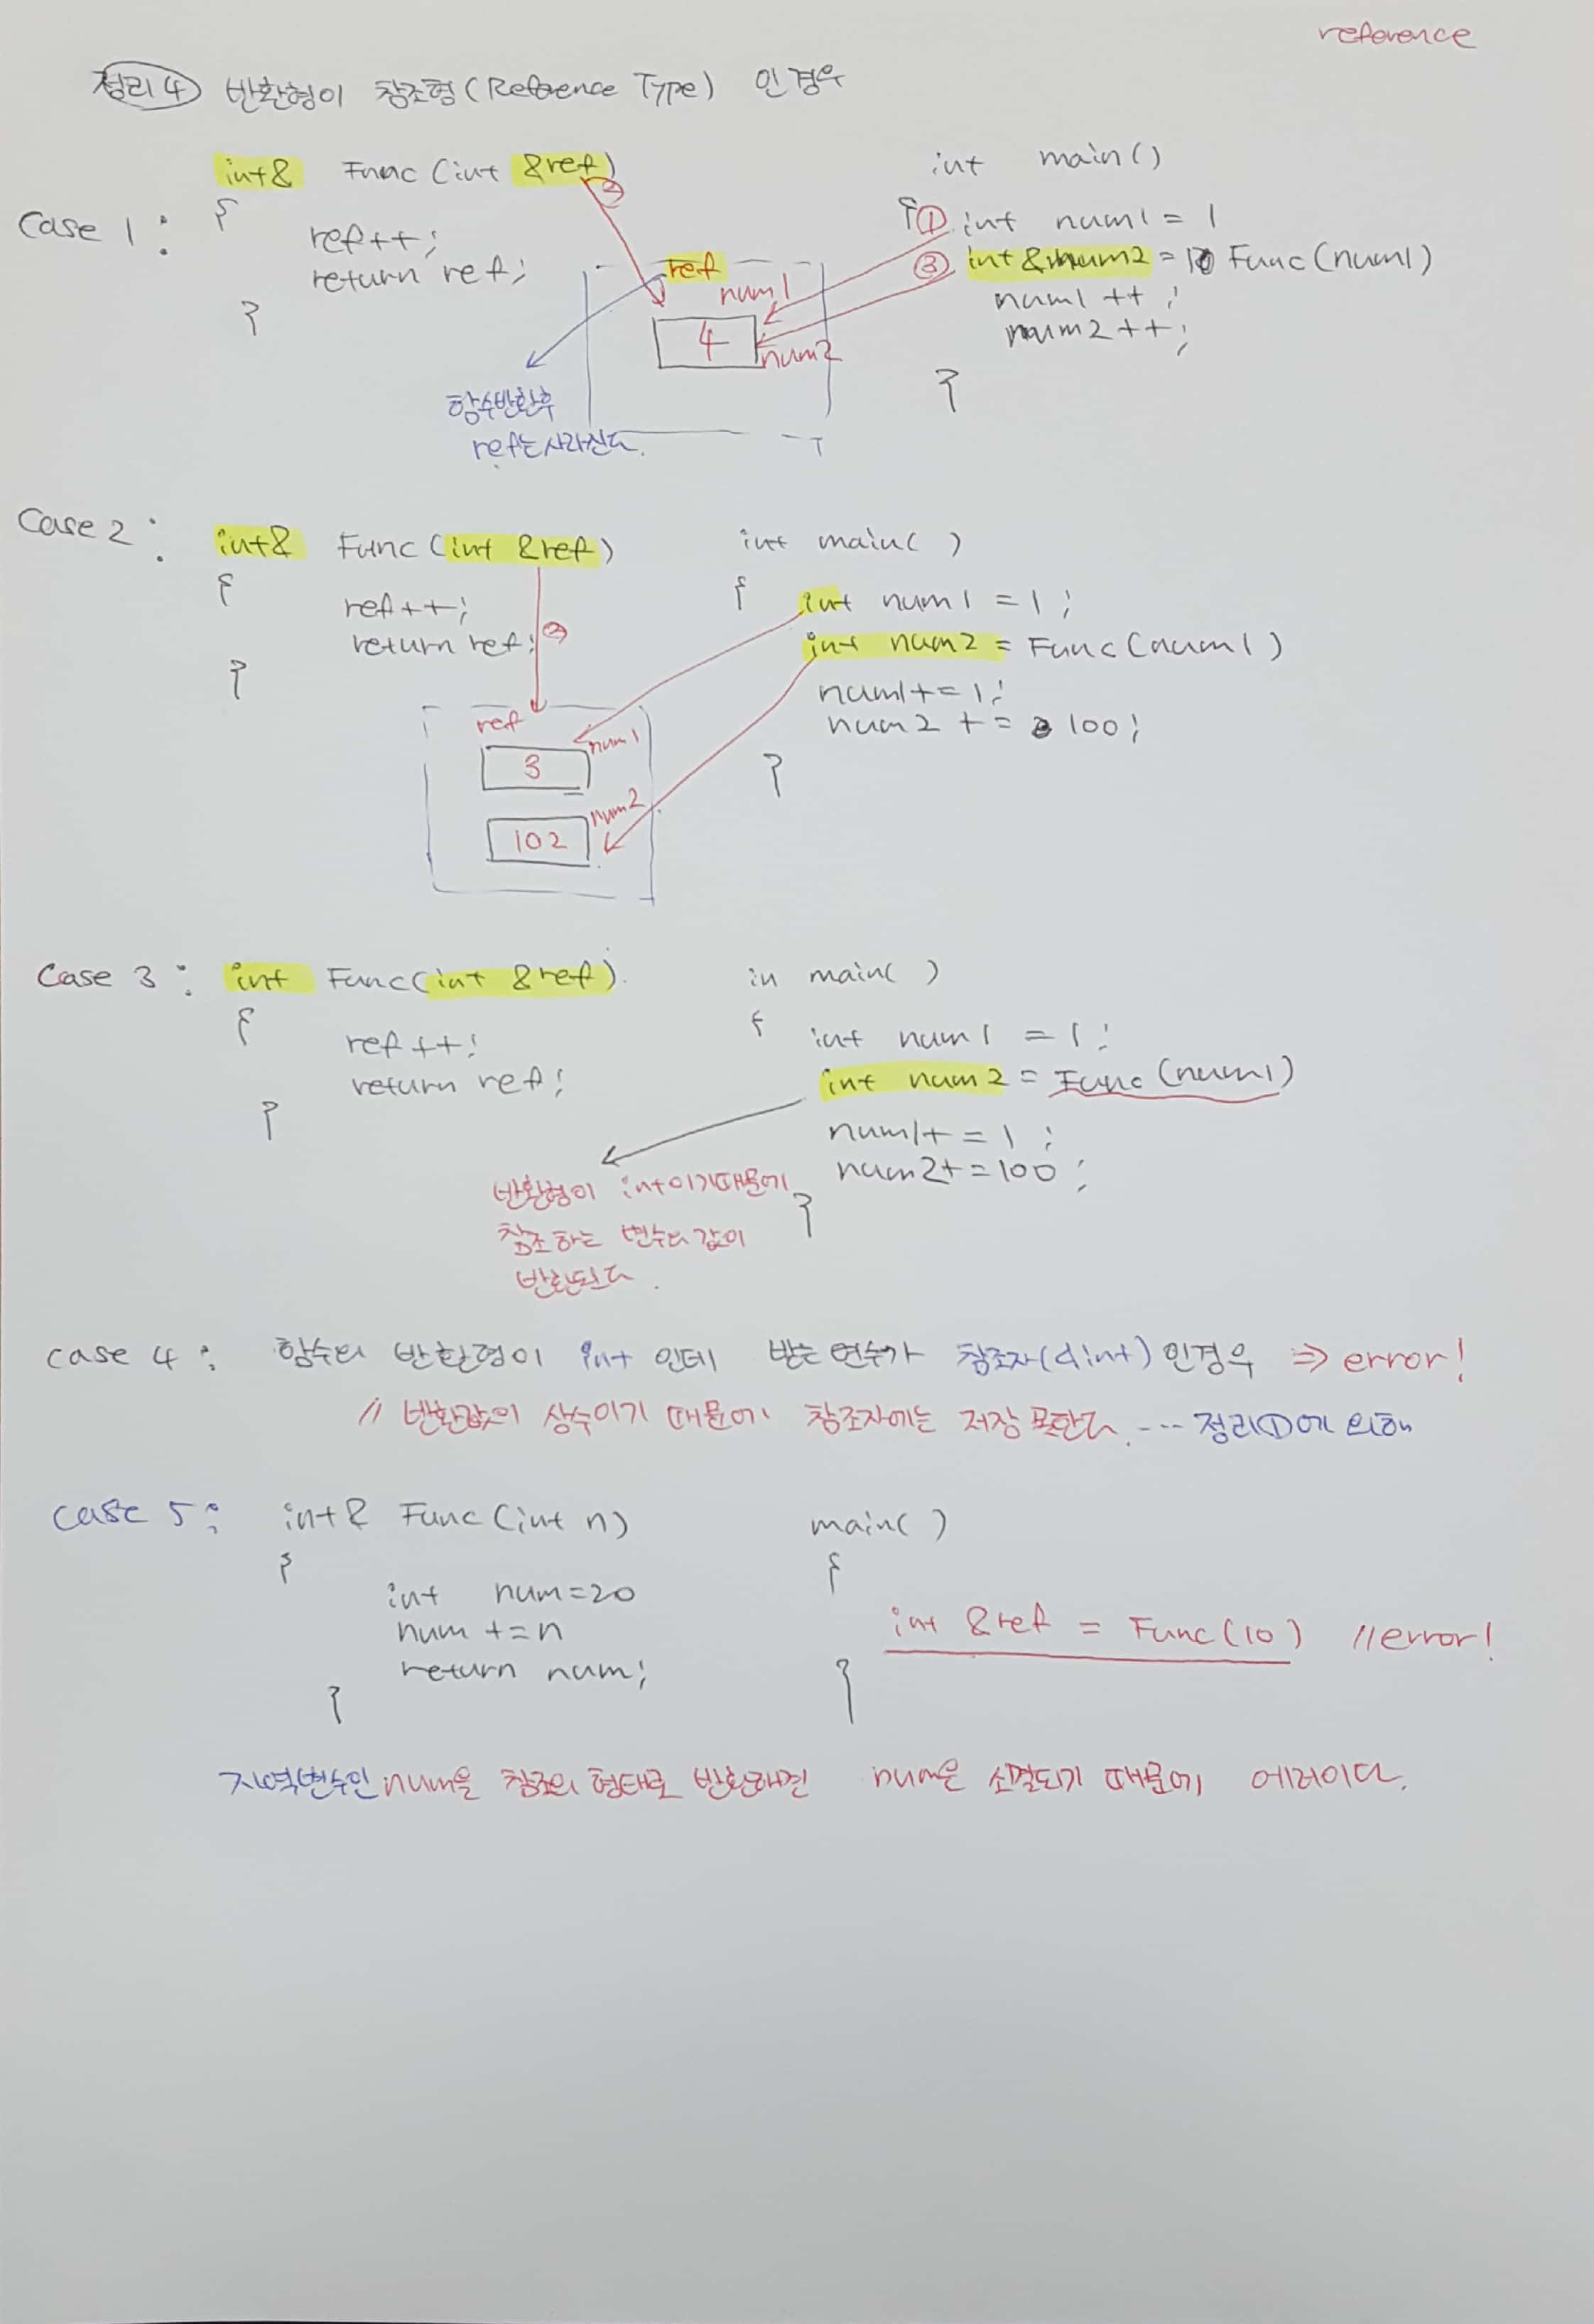 reference
정리4 반환형이 참조형(Reference Type) 인경우
Case 1 :
int& Func (int &ref)
{
ref++;
return ref;
}
int main()
{ ① int num1 = 1
③ int &num2 = Func(num1)
num1 ++ ;
num2 ++;
}
②
ref
num1
4
num2
함수반환후
ref는 사라진다.
Case 2 :
int& Func (int &ref)
{
ref++;
return ref;
}
②
int main( )
{ int num1 = 1 ;
int num2 = Func(num1)
num1+=1;
num2 += 100;
}
ref
num1
3
num2
102
Case 3 : int Func(int &ref)
{
ref++;
return ref;
}
in main( )
{ int num1 = 1;
int num2 = Func(num1)
num1+=1 ;
num2+=100 ;
}
반환형이 int이기때문에
참조하는 변수의 값이
반환된다.
case 4 : 함수의 반환형이 int 인데 받는 변수가 참조자(&int) 인경우 ⇒ error!
// 반환값이 상수이기 때문에 참조자에는 저장 못한다. --- 정리①에 의해
case 5 : int& Func (int n)
{
int num=20
num +=n
return num;
}
main( )
{
int &ref = Func(10) //error!
}
지역변수인 num을 참조의 형태로 반환하면 num은 소멸되기 때문에 에러이다.